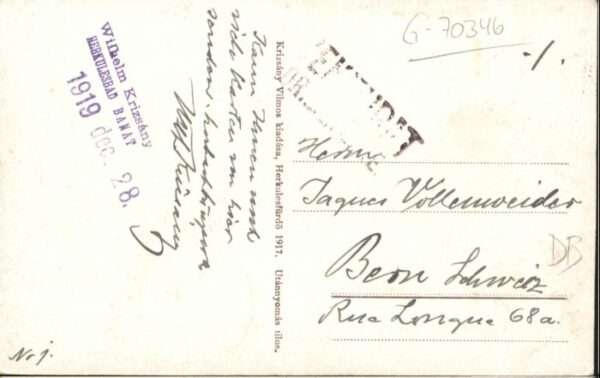 G-70346
-/.
Wilhelm Krizsány
HERKULESBAD BANAT
1919 dec. 28.
Kann Ihnen noch
viele Karten von hier
senden.
Krizsány Vilmos kiadása, Herkulesfürdő 1917. Utánnyomás tilos.
Herrn
Jaques Vollenweider
Bern Schweiz
Rue Longue 68a.
DB
No 1.